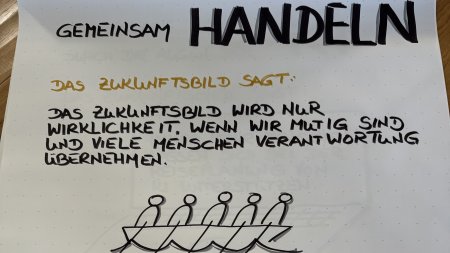 GEMEINSAM HANDELN
DAS ZUKUNFTSBILD SAGT:
DAS ZUKUNFTSBILD WIRD NUR
WIRKLICHKEIT, WENN WIR MUTIG SIND
UND VIELE MENSCHEN VERANTWORTUNG
ÜBERNEHMEN.